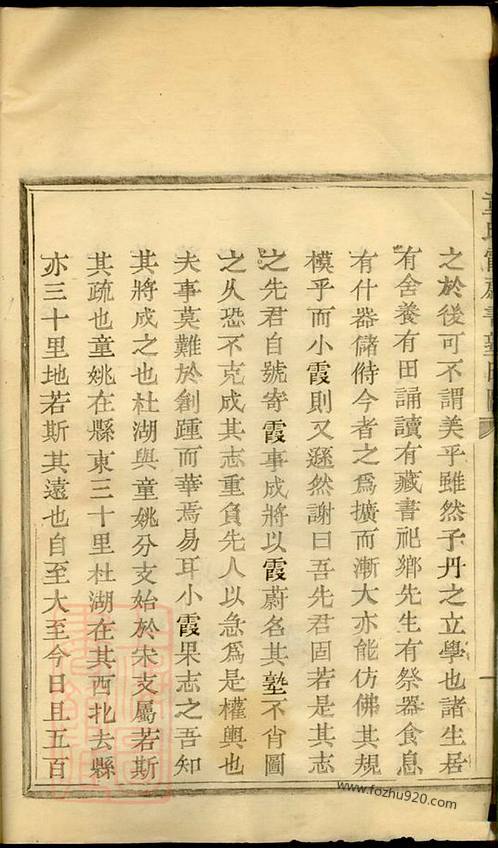 之於後可不謂美乎雖然子丹之立學也諸生居
有舍養有田誦讀有藏書祀鄉先生有祭器食息
有什器儲偫今者之爲擴而漸大亦能仿佛其規
模乎而小霞則又遜然謝曰吾先君固若是其志
之先君自號寄霞事成將以霞蔚名其塾不肖圖
之久恐不克成其志重負先人以急爲是權輿也
夫事莫難於創踵而華焉易耳小霞果志之吾知
其將成之也杜湖與童姚分支始於宋支屬若斯
其疏也童姚在縣東三十里杜湖在其西北去縣
亦三十里地若斯其遠也自至大至今日且五百
www.fozhu920.com